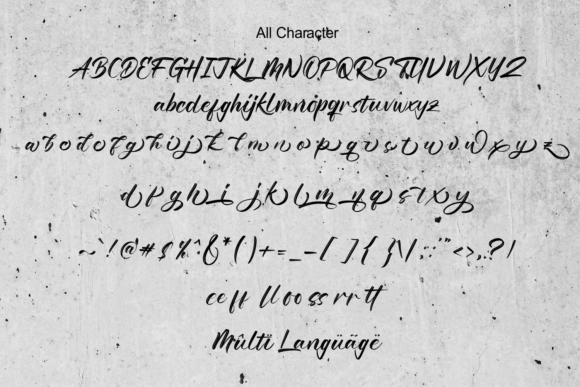 All Character
ABCDEFGHIJKLMNOPQRSTUVWXYZ
abcdefghijklmnopqrstuvwxyz
abcdefghijklmnopqrstuvwxyz
dfghijklmnqpstxy
~`!@#$%^&*()+=_-[]{}\|;:'"<>,.?/
ee ff ll oo ss rr tt
Mûltï Langüägë